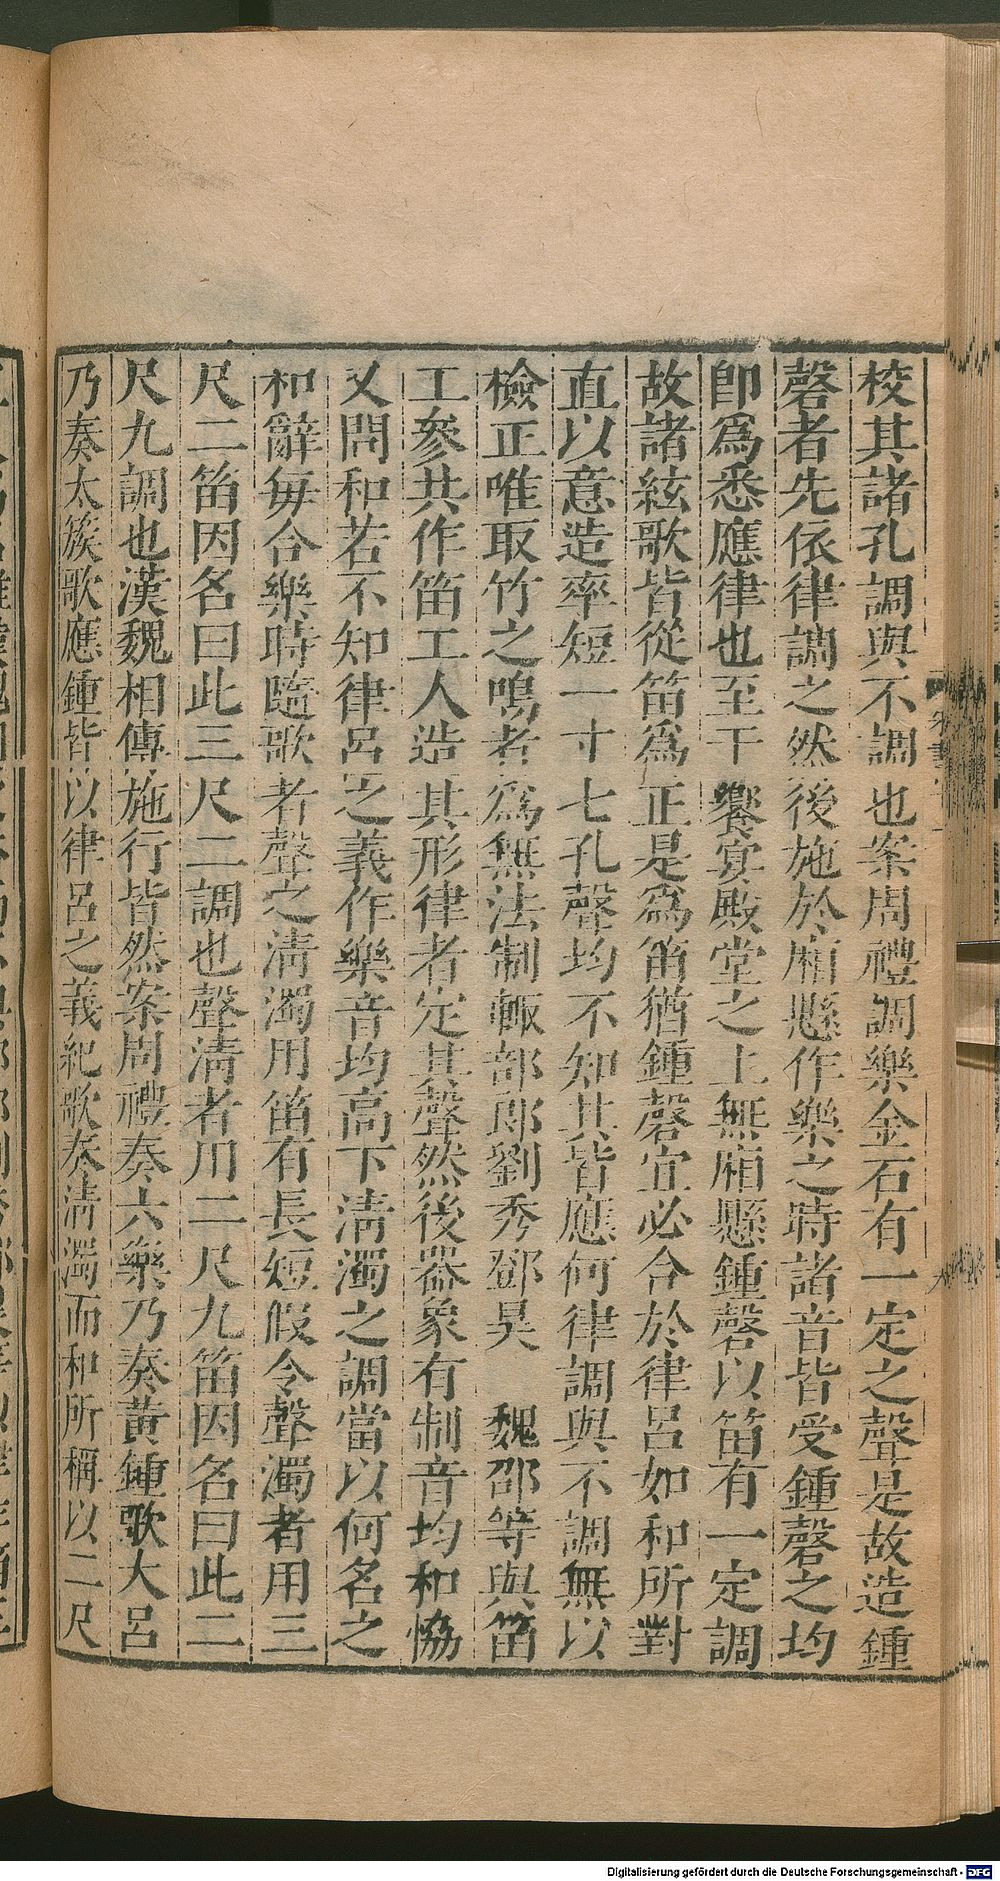 校其諸孔調與不調也案周禮調樂金石有一定之聲是故造鍾
磬者先依律調之然後施於廂懸作樂之時諸音皆受鍾磬之均
即爲悉應律也至于饗宴殿堂之上無廂懸鍾磬以笛有一定調
故諸絃歌皆從笛爲正是爲笛猶鍾磬宜必合於律呂如和所對
直以意造率短一寸七孔聲均不知其皆應何律調與不調無以
檢正唯取竹之鳴者爲無法制輒部郎劉秀鄧昊 魏邵等與笛
工參共作笛工人造其形律者定其聲然後器象有制音均和協
又問和若不知律呂之義作樂音均高下淸濁之調當以何名之
和辭每合樂時隨歌者聲之淸濁用笛有長短假令聲濁者用三
尺二笛因名曰此三尺二調也聲淸者用二尺九笛因名曰此二
尺九調也漢魏相傳施行皆然案周禮奏六樂乃奏黃鍾歌大呂
乃奏太簇歌應鍾皆以律呂之義紀歌奏淸濁而和所稱以二尺
Digitalisierung gefördert durch die Deutsche Forschungsgemeinschaft - DFG